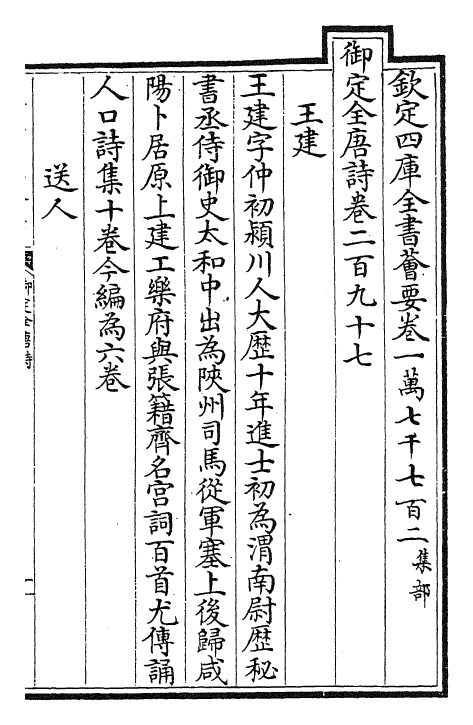 欽定四庫全書薈要卷一萬七千七百二集部
御定全唐詩卷二百九十七
王建
王建字仲初潁川人大歴十年進士初為渭南尉歴秘
書丞侍御史太和中出為陝州司馬從軍塞上後歸咸
陽卜居原上建工樂府與張籍齊名宮詞百首尤傳誦
人口詩集十卷今編為六卷
送人
御定全唐詩
一